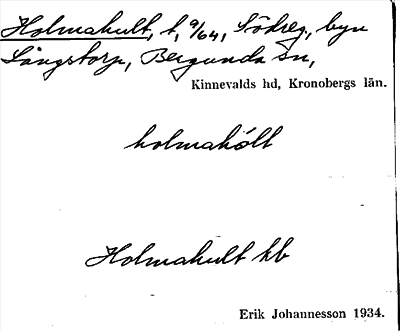 Holmakult, t, 9/64, Södreg, byn
Långstorp, Bergunda sn,
Kinnevalds hd, Kronobergs län.
holmakólt
Holmakult hb
Erik Johannesson 1934.